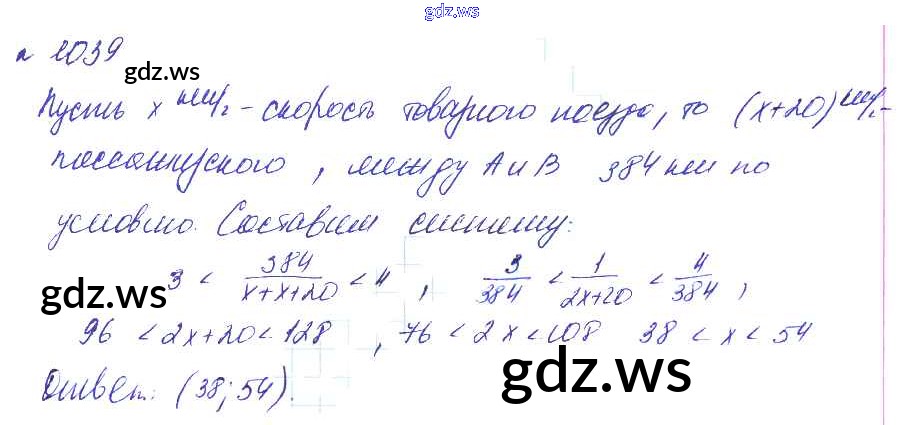 gdz.ws
n 1039
gdz.ws
Пусть x км/г - скорость товарного поезда, то (x+20) км/г -
пассажирского, между A и B 384 км по
условию. Составим систему:
3 < 384/(x+x+20) < 4, 3/384 < 1/(2x+20) < 4/384,
gdz.ws
96 < 2x+20 < 128, 76 < 2x < 108 38 < x < 54
gdz.ws
Ответ: (38; 54).